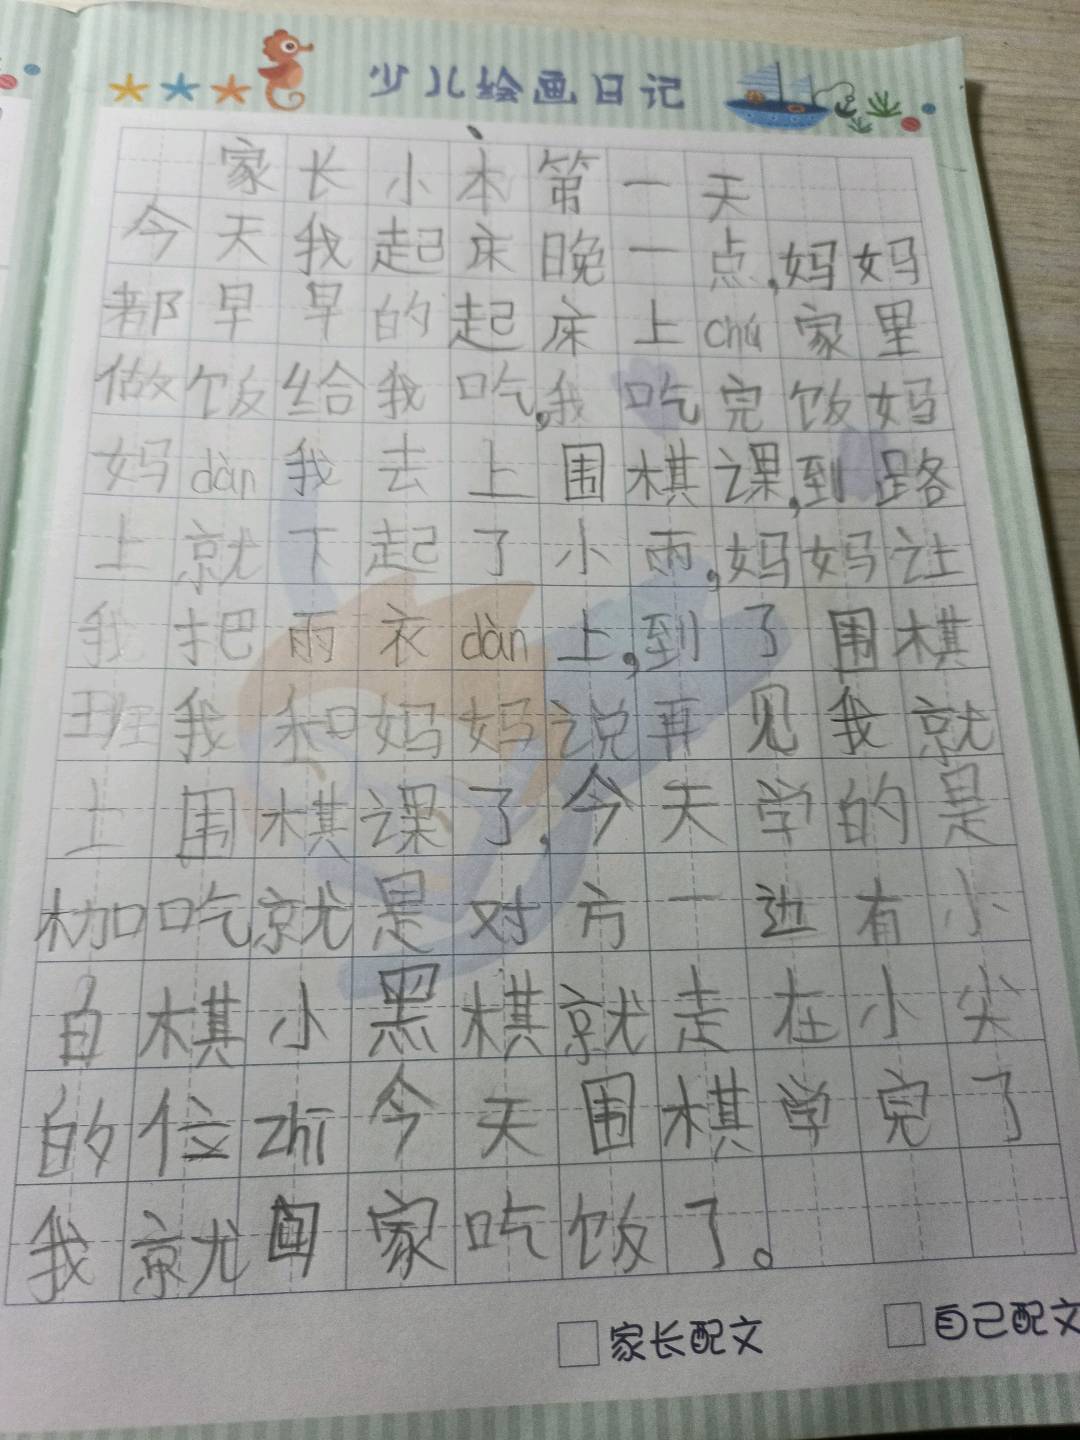 少儿绘画日记
家长小本第一天
今天我起床晚一点,妈妈
都早早的起床上chú家里
做饭给我吃,我吃完饭妈
妈dàn我去上围棋课,到路
上就下起了小雨,妈妈让
我把雨衣dàn上,到了围棋
班我和妈妈说再见我就
上围棋课了,今天学的是
枷吃就是对方一边有小
白棋小黑棋就走在小尖
的位zhī今天围棋学完了
我就回家吃饭了。
家长配文
自己配文